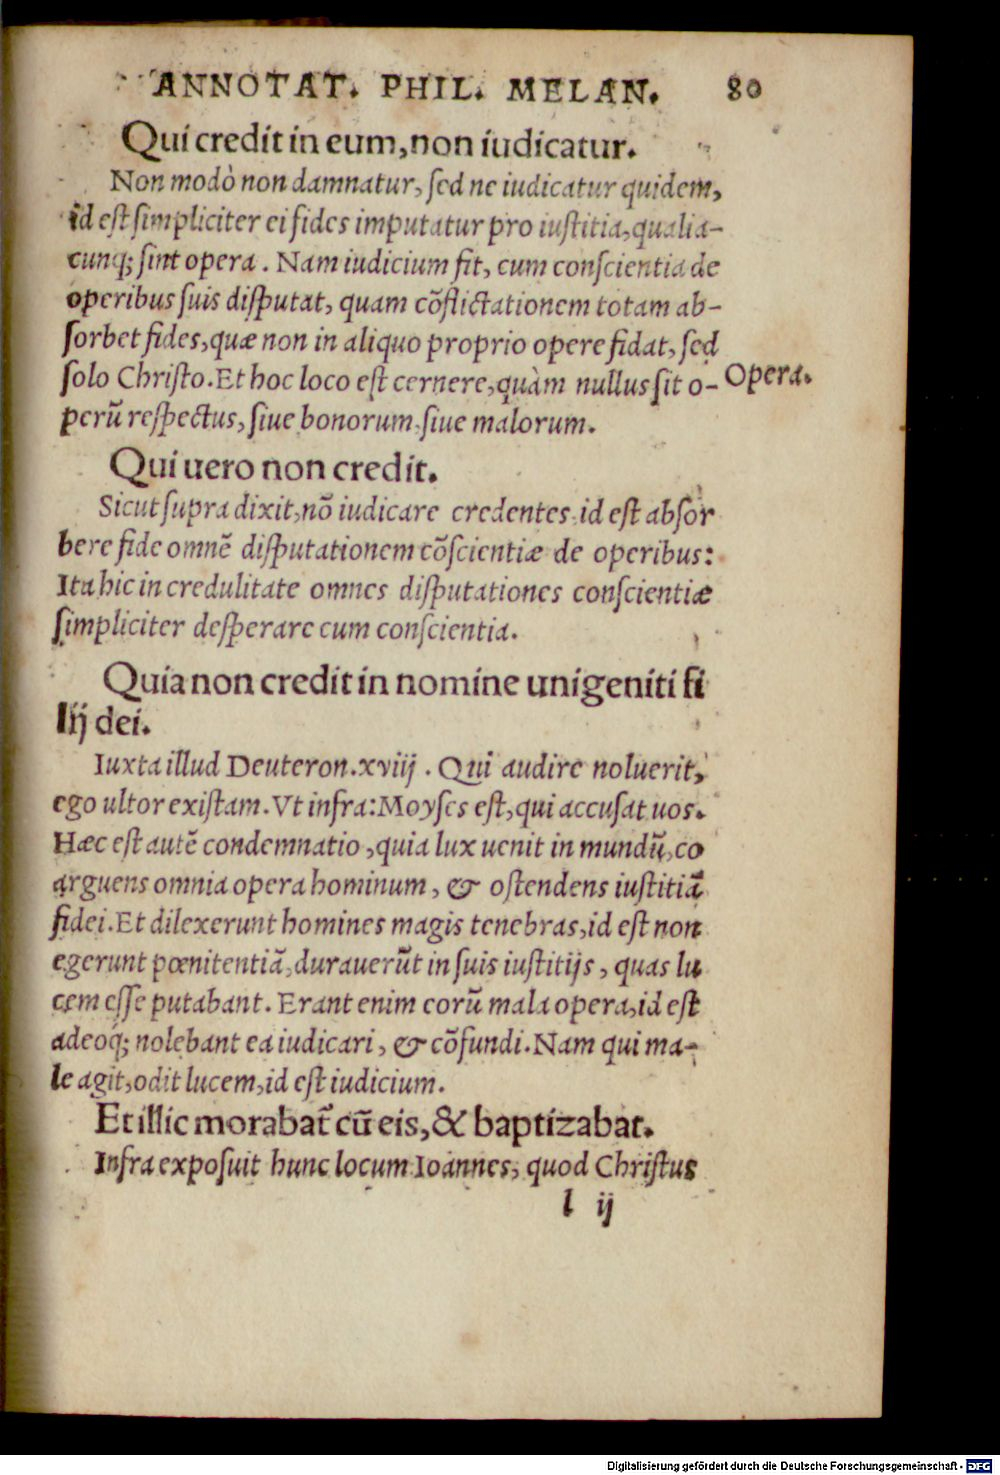 ANNOTAT. PHIL. MELAN. 80
Qui credit in eum, non iudicatur.
Non modò non damnatur, ſed ne iudicatur quidem,
id eſt ſimpliciter ei fides imputatur pro iuſtitia, qualia-
cunq; ſint opera. Nam iudicium fit, cum conſcientia de
operibus ſuis diſputat, quam cõflictationem totam ab-
ſorbet fides, quæ non in aliquo proprio opere fidat, ſed
ſolo Chriſto. Et hoc loco eſt cernere, quàm nullus ſit o- Opera.
perũ reſpectus, ſiue bonorum, ſiue malorum.
Qui uero non credit.
Sicut ſupra dixit, nõ iudicare credentes, id eſt abſor
bere fide omnẽ diſputationem cõſcientiæ de operibus:
Ita hic in credulitate omnes diſputationes conſcientiæ
ſimpliciter deſperare cum conſcientia.
Quia non credit in nomine unigeniti fi
lij dei.
Iuxta illud Deuteron. xviij. Qui audire noluerit,
ego ultor exiſtam. Vt infra: Moyſes eſt, qui accuſat uos.
Hæc eſt autẽ condemnatio, quia lux uenit in mundũ, co
arguens omnia opera hominum, & oſtendens iuſtitiã
fidei. Et dilexerunt homines magis tenebras, id eſt non
egerunt pœnitentiã, durauerũt in ſuis iuſtitijs, quas lu
cem eſſe putabant. Erant enim eorũ mala opera, id eſt
adeoq́; nolebant ea iudicari, & cõfundi. Nam qui ma-
le agit, odit lucem, id eſt iudicium.
Et illic morabat᷑ cũ eis, & baptizabat.
Infra expoſuit hunc locum Ioannes, quod Chriſtus
l ij
Digitalisierung gefördert durch die Deutsche Forschungsgemeinschaft - DFG